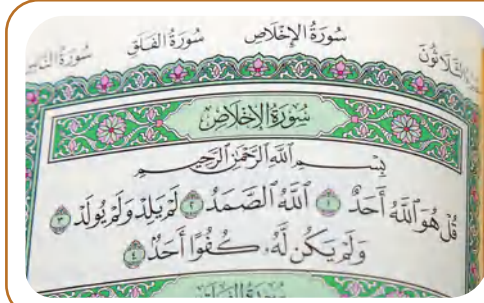 سُورَةُ الإِخْلَاصِ سُورَةُ الفَلَقِ
سُورَةُ الإِخْلَاصِ
بِسْمِ اللَّهِ الرَّحْمَٰنِ الرَّحِيمِ
قُلْ هُوَ اللَّهُ أَحَدٌ ١ اللَّهُ الصَّمَدُ ٢ لَمْ يَلِدْ وَلَمْ يُولَدْ ٣
وَلَمْ يَكُن لَّهُۥ كُفُوًا أَحَدٌ ٤